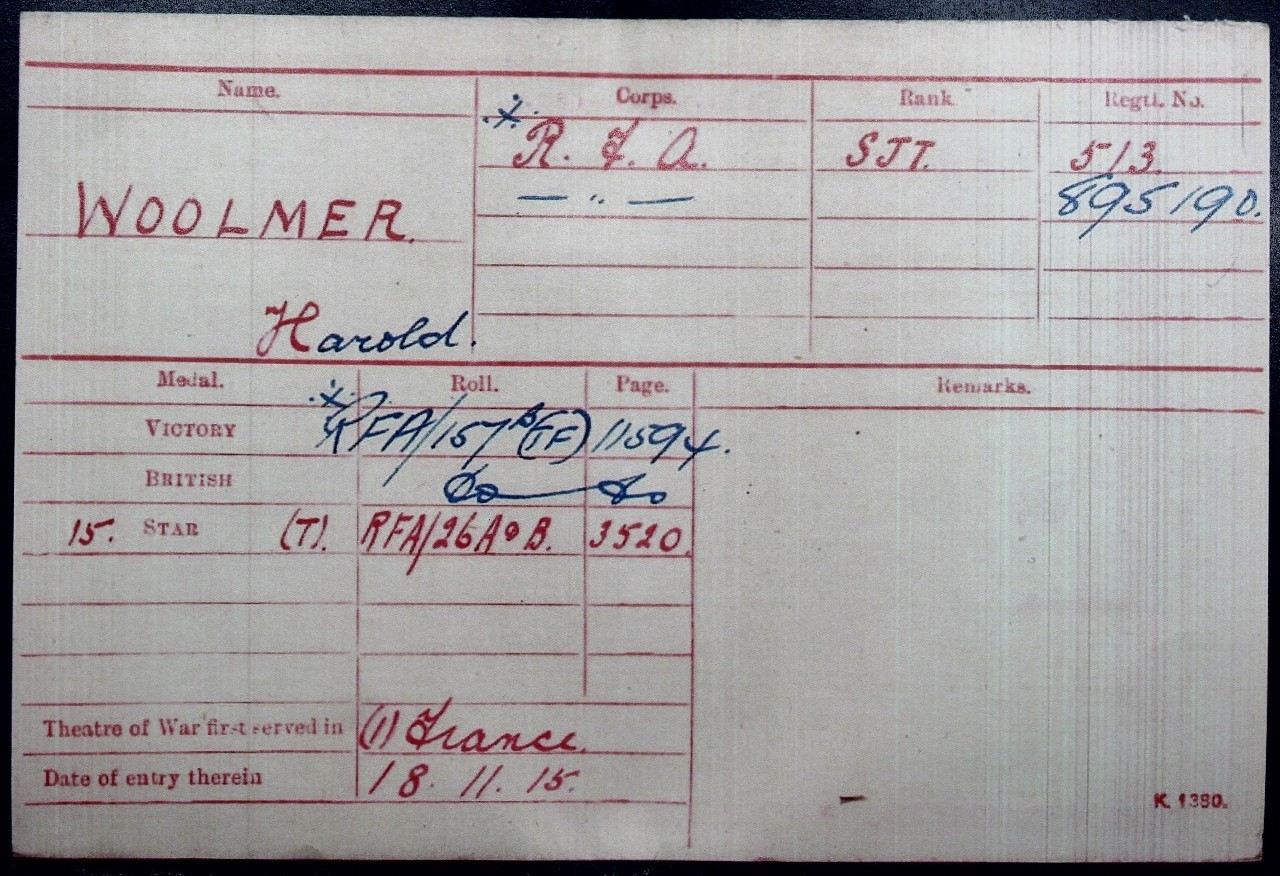 Name. Corps. Rank Regtl. No.
R. F. A. SJT. 513.
WOOLMER. — " — 895190.
Harold.
Medal. Roll. Page. Remarks.
VICTORY RFA/157B(TF) 11594.
BRITISH Do Do
15. STAR (T). RFA/26A & B. 3520.
Theatre of War first served in (1) France.
Date of entry therein 18. 11. 15.
K. 1380.